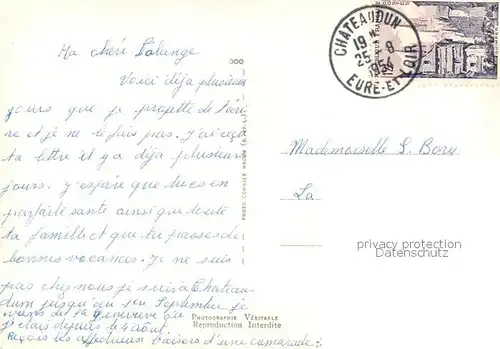 Ma chéré Solange
Voici déja plusieurs
jours que je projette de t'écri
re et je ne le fais pas. J'ai reçu
ta lettre il y a déja plusieurs
jours. J'espère que tu es en
parfaite santé ainsi que toute
ta famille et que tu passes de
bonnes vacances. Je ne suis
pas chez nous je suis a Chateau
dum jusqu'au 1er Septembre je
viens de Geneviève
j'étais depuis le 4 août.
Reçois les affectueux baisers d'une camarade
PHOTO COMBIER MACON (S.-ET-L.)
PHOTOGRAPHIE VÉRITABLE
Reproduction Interdite
CHATEAUDUN
19 H
25-8
1954
EURE-ET-LOIR
Mademoiselle S. Bory
La
privacy protection
Datenschutz